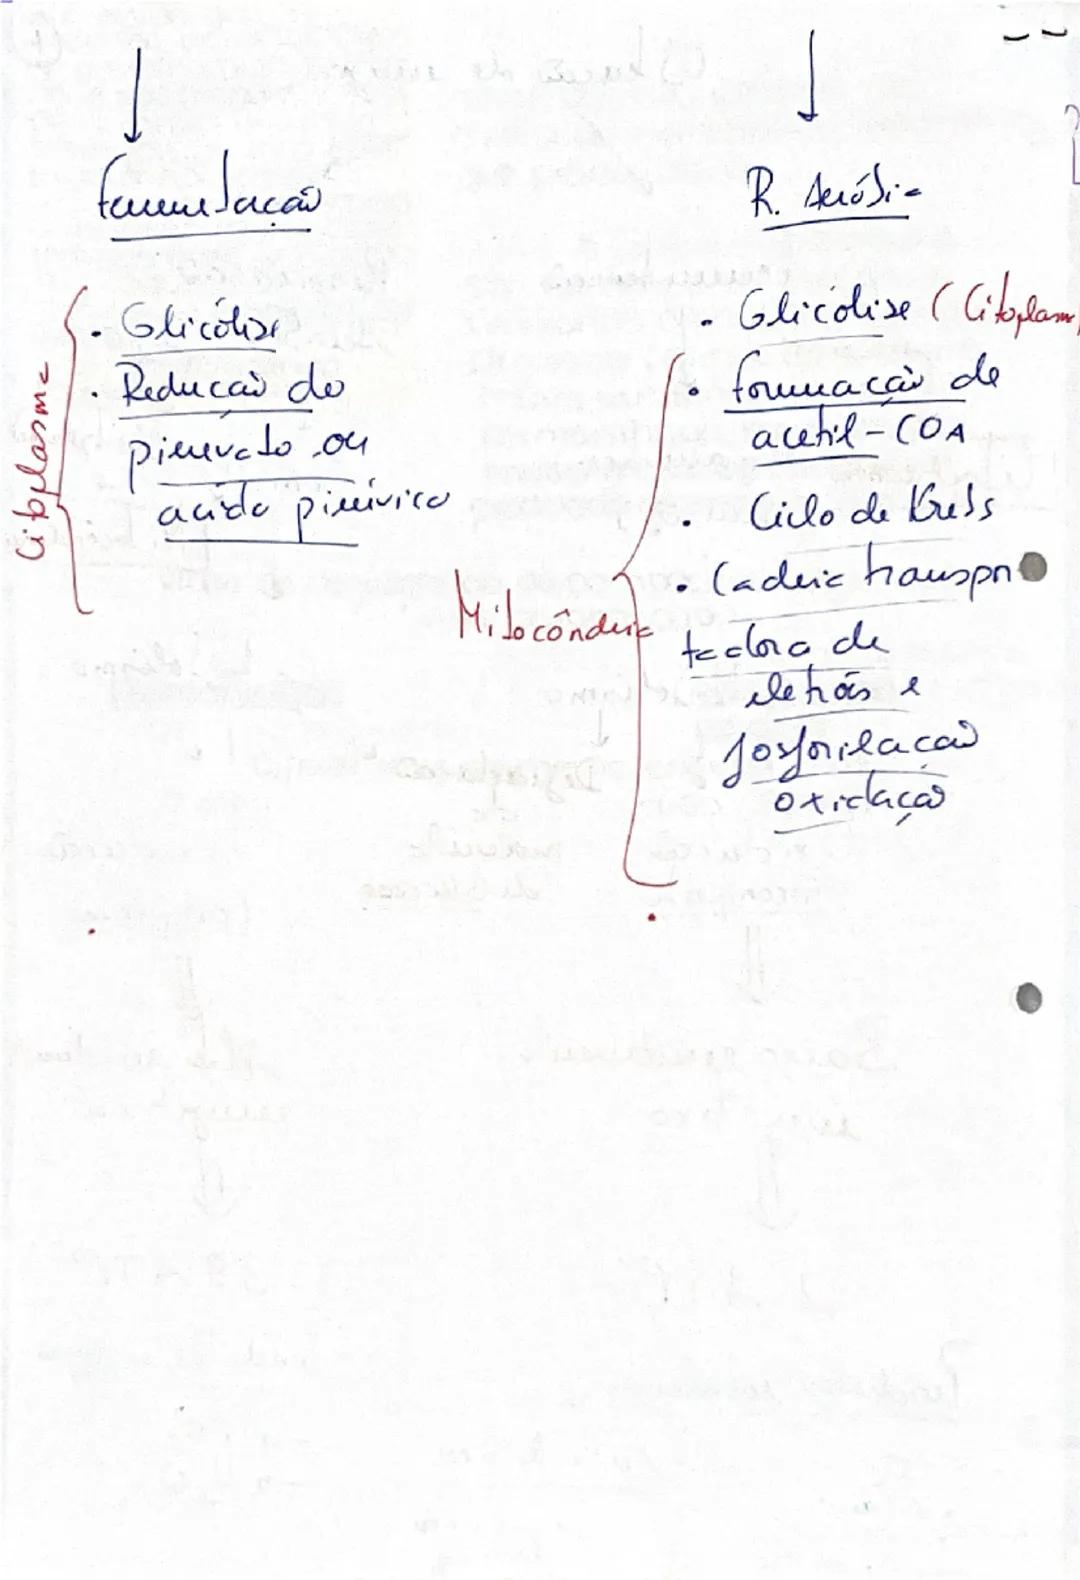 fermentação
R. Aeróbia
Citoplasma
. Glicólise
. Redução do
piruvato ou
acido pirúvico
. Glicólise (Citoplasma)
. formação de
acetil-COA
. Ciclo de Krebs
. Cadeia transpor
tadora de
eletrões e
fosforilação
oxidação
Mitocôndria